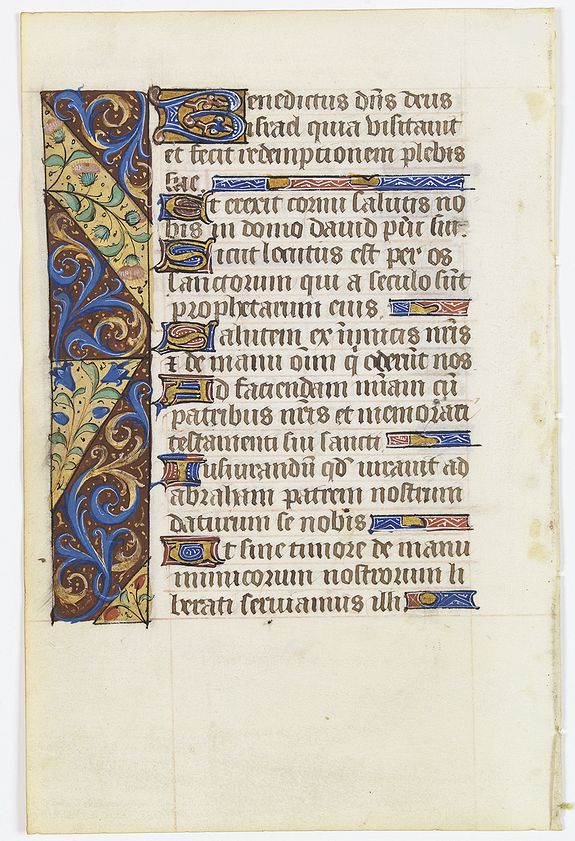 Benedictus dñs deus
israel quia visitauit
et fecit redempcionem plebis
sue.
Et erexit cornu salutis no
bis in domo dauid pũi sui.
Sicut locutus est per os
sanctorum qui a seculo sũt
prophetarum eius
Salutem ex inimicis nr̃is
⁊ de manu oĩm q̃ oderũt nos
Ad faciendam mĩam cũ
patribus nr̃is et memorari
testamenti sui sancti
Iusiurandũ qd̃ iurauit ad
abraham patrem nostrum
daturum se nobis
Ut sine timore de manu
inimicorum nostrorum li
berati seruiamus illi